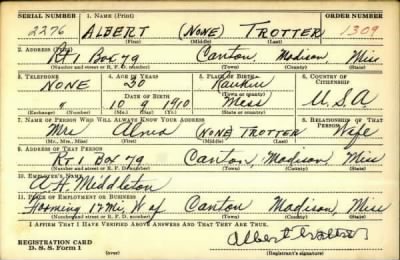 SERIAL NUMBER 1. NAME (Print) ORDER NUMBER
2276 ALBERT (NONE) TROTTER 1309
(First) (Middle) (Last)
2. ADDRESS (Print)
Rt 1 Box 79 Canton, Madison, Miss
(Number and street or R. F. D. number) (Town) (County) (State)
3. TELEPHONE 4. AGE IN YEARS 5. PLACE OF BIRTH 6. COUNTRY OF CITIZENSHIP
NONE 30 Rankin
DATE OF BIRTH (Town or county)
" 10 9 1910 Miss U.S.A
(Exchange) (Number) (Mo.) (Day) (Yr.) (State or country)
7. NAME OF PERSON WHO WILL ALWAYS KNOW YOUR ADDRESS 8. RELATIONSHIP OF THAT PERSON
Mrs (NONE) TROTTER Wife
(Mr., Mrs., Miss) (First) (Middle) (Last)
9. ADDRESS OF THAT PERSON
Rt 1 Box 79 Canton, Madison, Miss
(Number and street or R. F. D. number) (Town) (County) (State)
10. EMPLOYER'S NAME
A.H. Middleton
11. PLACE OF EMPLOYMENT OR BUSINESS
Farming 17 Mi, W of Canton Madison, Miss
(Number and street or R. F. D. number) (Town) (County) (State)
I AFFIRM THAT I HAVE VERIFIED ABOVE ANSWERS AND THAT THEY ARE TRUE.
REGISTRATION CARD Albert Trotter
D. S. S. Form 1 (over) (Registrant's signature)